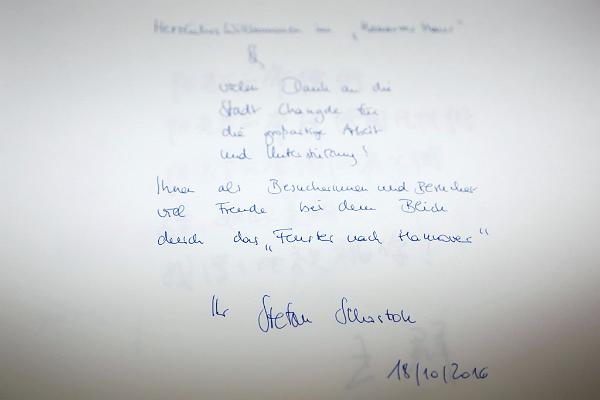 Herzliches Willkommen im „Hannover Haus“
&
vielen Dank an die
Stadt Changde für
die großartige Arbeit
und Unterstützung!
Ihnen als Besucherinnen und Besucher
viel Freude bei dem Blick
durch das „Fenster nach Hannover“
Ihr Stefan Schostok
18/10/2016